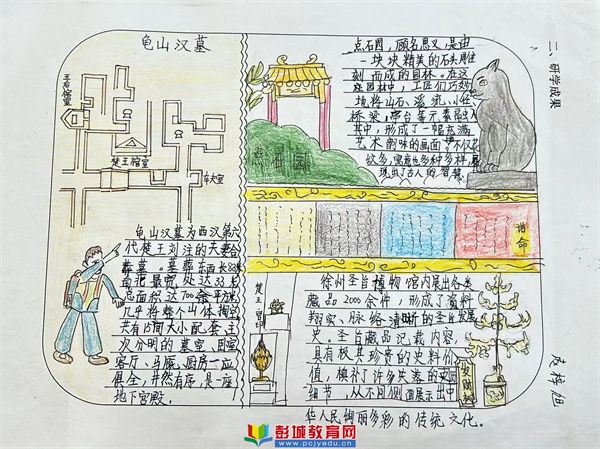 二、研学成果
龟山汉墓
王后棺室
楚王棺室
车马室
龟山汉墓为西汉第六
代楚王刘注的夫妻合
葬墓。墓葬东西长83米
南北最宽处达33米
总面积达700余平方米
几乎将整个山体掏空
共有15间大小配套、主
次分明的墓室、
客厅、马厩、厨房一应
俱全,井然有序,是一座
地下宫殿。
点石园,顾名思义,是由
一块块精美的石头雕
刻而成的园林。在这
座园林中,工匠们巧妙
地将山石、溪流、小径
桥梁、亭台等元素
其中,形成了一幅充满
艺术韵味的画面,不仅
数多,寓意也多种多样,
现出了古人的智慧
点石园
诰命
楚王
徐州圣旨博物馆内展出各类
藏品2000余件,形成了资料
翔实、脉络清晰的圣旨发展
史。圣旨藏品记载内容,
具有极其珍贵的史料价
值,填补了许多失落的
细节,从不同侧面展示出中
华人民绚丽多彩的传统文化。
彭城教育网
www.pcjyedu.cn